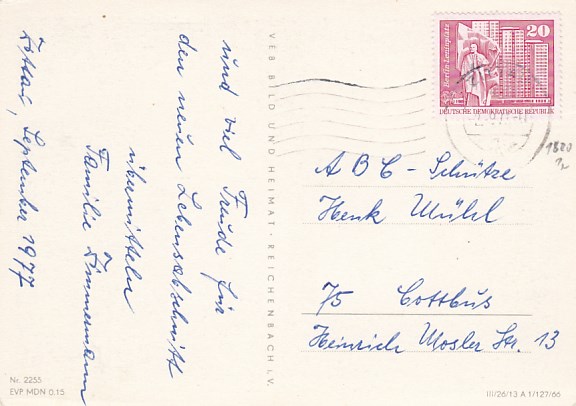 und viel Freude für
den neuen Lebensabschnitt
übermitteln
Familie Zimmermann
September 1977
VEB BILD UND HEIMAT · REICHENBACH I. V.
Nr. 2255
EVP MDN 0.15
20
Berlin-Leninplatz
DEUTSCHE DEMOKRATISCHE REPUBLIK
1820
ABC-Schütze
Henk Mühl
75 Cottbus
Heinrich Mosler Str. 13
III/26/13 A 1/127/66